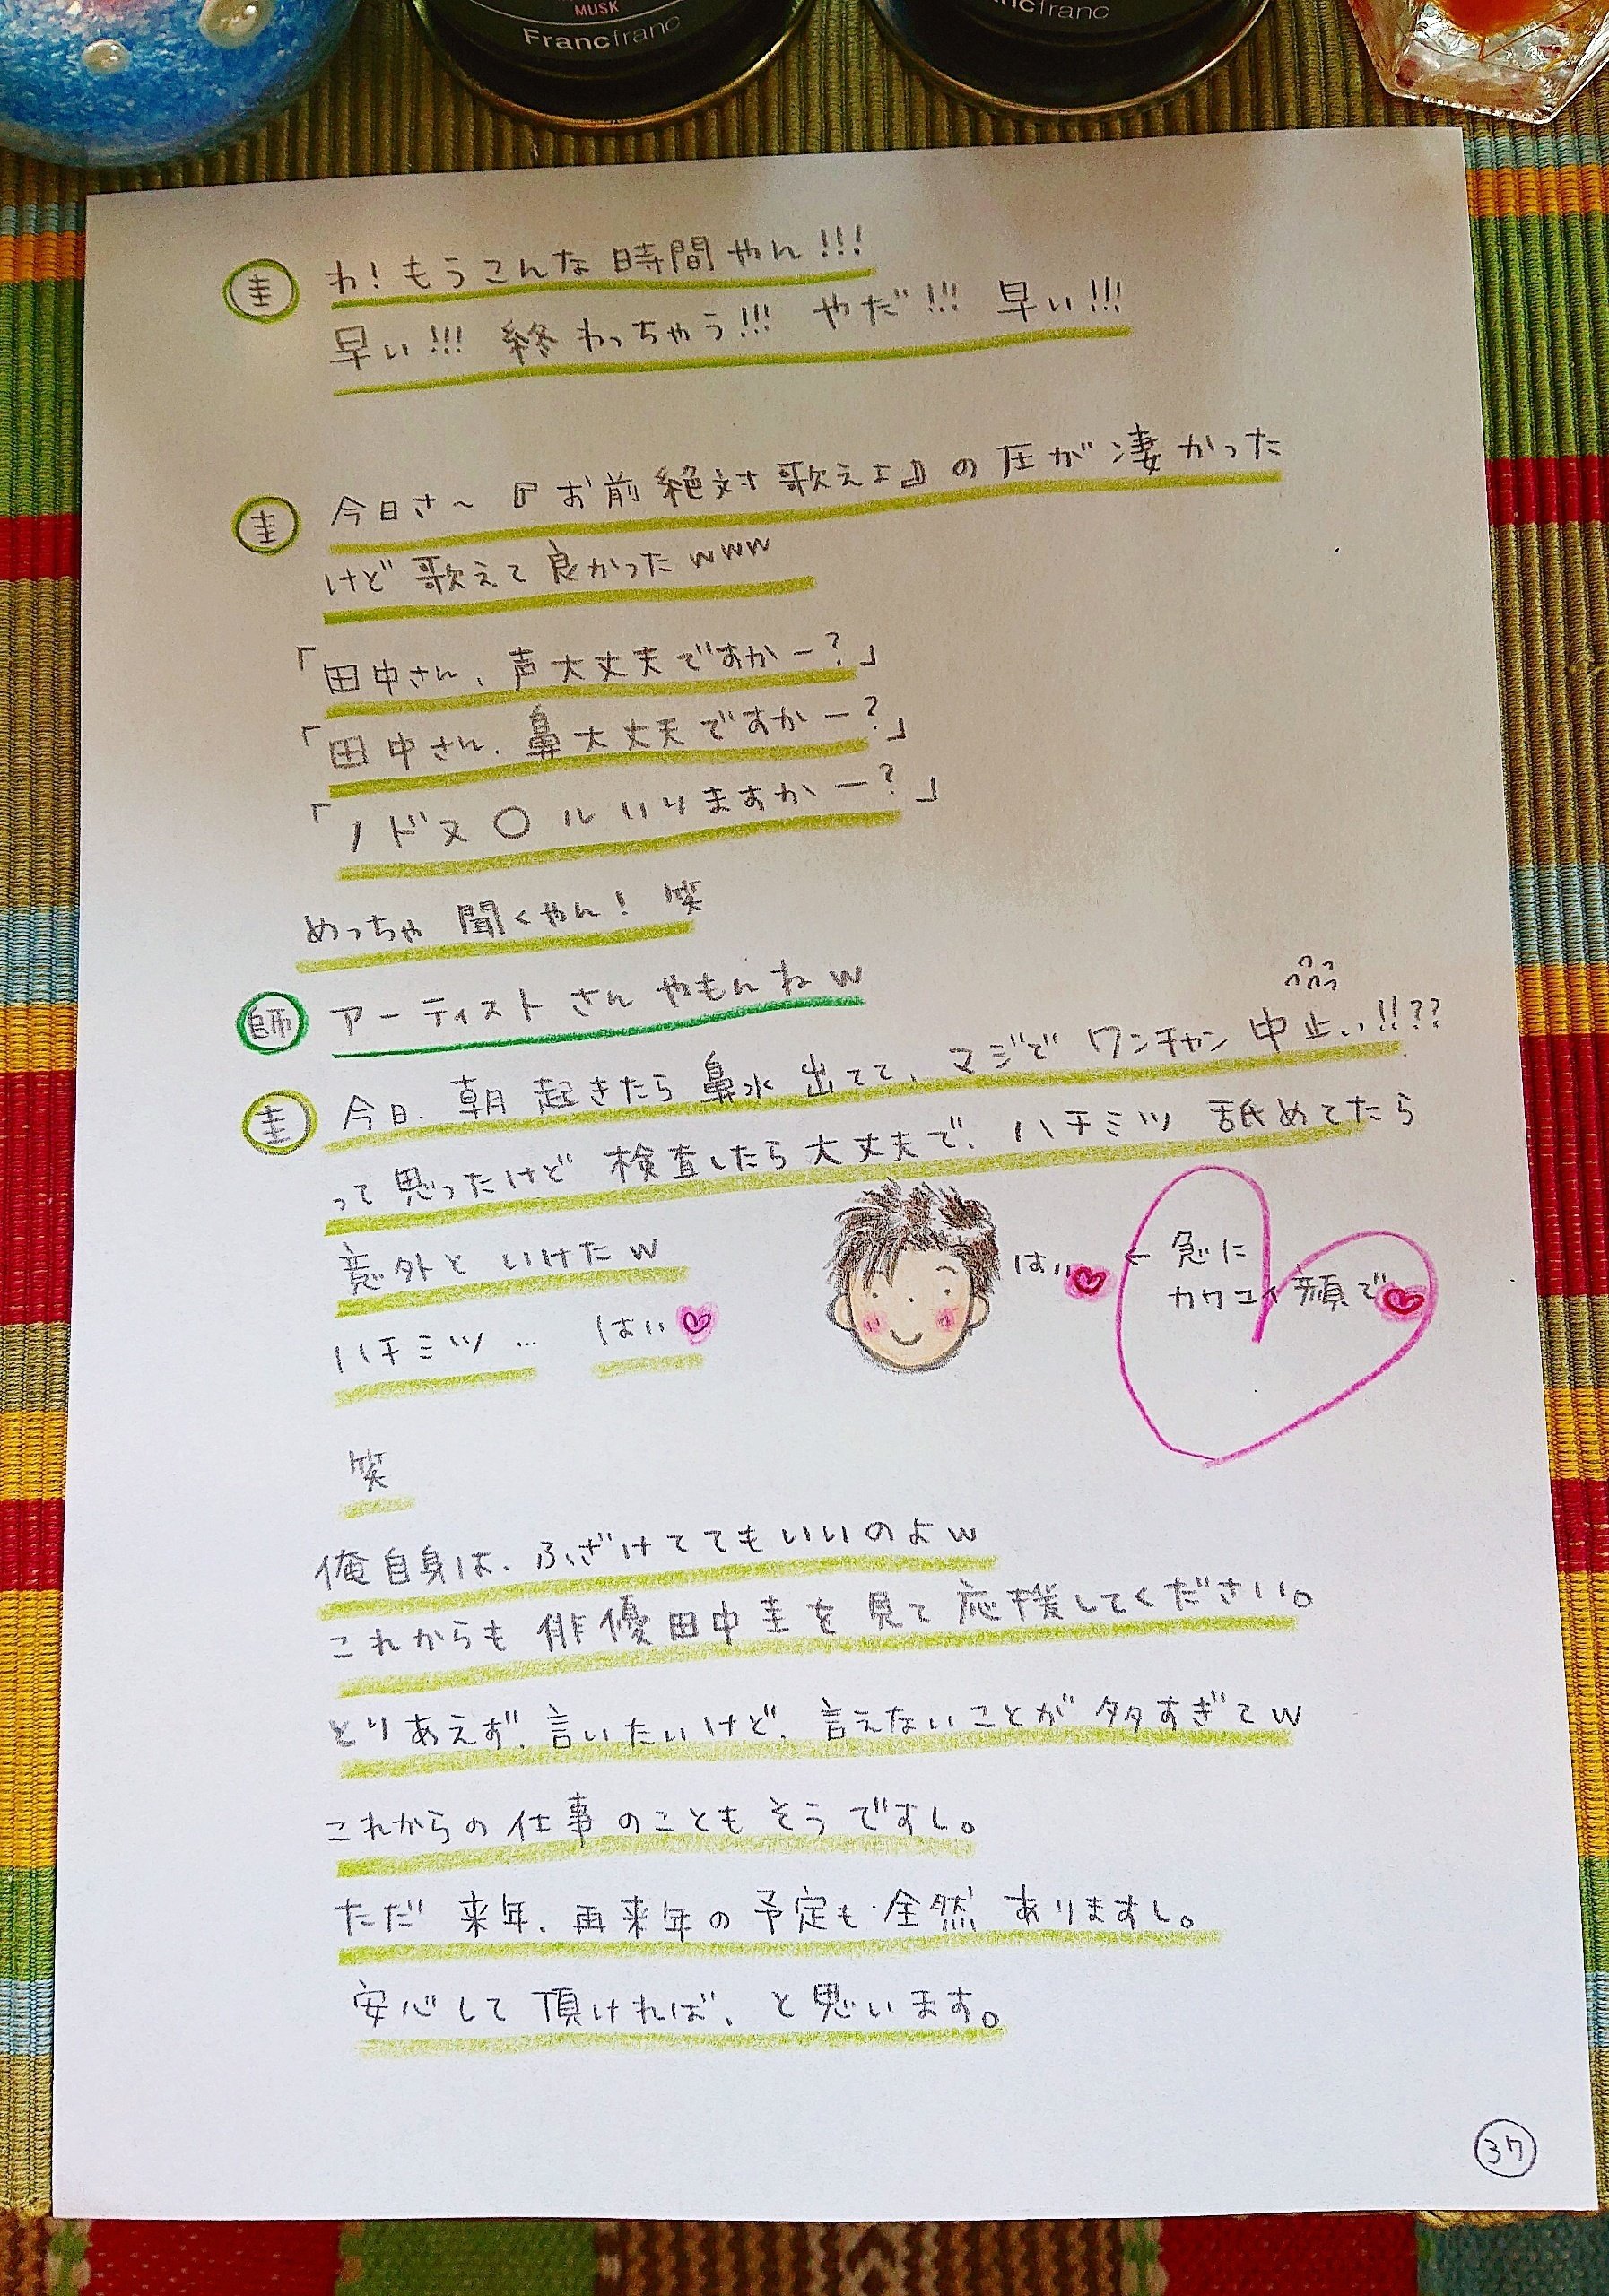 MUSK
Francfranc
ncfranc
圭 わ！もうこんな時間やん!!!
早い!!! 終わっちゃう!!! やだ!!! 早い!!!
圭 今日さ〜『お前絶対歌えよ』の圧が凄かった
けど歌えて良かったwww
「田中さん、声大丈夫ですかー？」
「田中さん、鼻大丈夫ですかー？」
「ノドヌ〇ルいりますかー？」
めっちゃ聞くやん！笑
師 アーティストさんやもんねw
圭 今日、朝起きたら鼻水出てて、マジでワンチャン中止い!!??
って思ったけど検査したら大丈夫で、ハチミツ舐めてたら
意外といけたw
はい♡ ← 急に
カワユイ顔で♡
ハチミツ… はい♡
笑
俺自身は、ふざけててもいいのよw
これからも俳優田中圭を見て応援してください。
とりあえず、言いたいけど、言えないことが多すぎてw
これからの仕事のこともそうですし。
ただ来年、再来年の予定も全然ありますし。
安心して頂ければ、と思います。
37